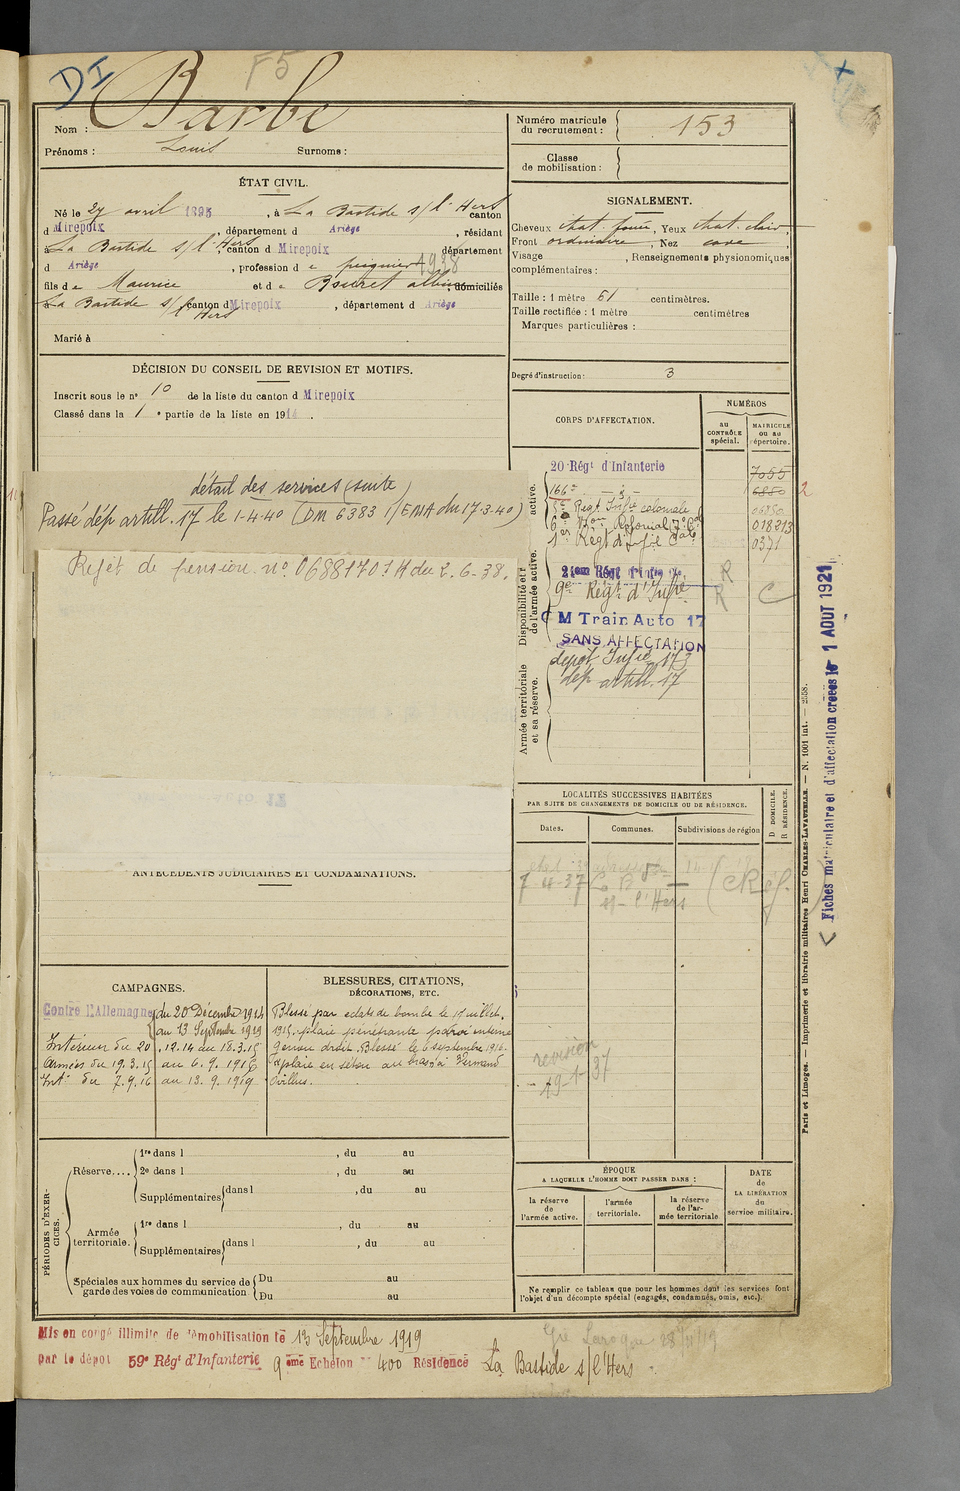 DI
F5
Nom : Barbe
Prénoms : Louis Surnoms :
Numéro matricule du recrutement : 153
Classe de mobilisation :
ÉTAT CIVIL.
Né le 27 avril 1895, à La Bastide s/ l'Hers canton
d Mirepoix, département d Ariège, résidant
à La Bastide s/ l'Hers, canton d Mirepoix département
d Ariège, profession d e peignier 4938
fils d e Maurice et d e Bouret domiciliés
à La Bastide s/ l'Hers canton d Mirepoix, département d Ariège
Marié à
SIGNALEMENT.
Cheveux chat. foncé, Yeux chat. clair,
Front ordinaire, Nez cave,
Visage , Renseignements physionomiques
complémentaires :
Taille : 1 mètre 61 centimètres.
Taille rectifiée : 1 mètre centimètres
Marques particulières :
Degré d'instruction : 3
DÉCISION DU CONSEIL DE REVISION ET MOTIFS.
Inscrit sous le n° 10 de la liste du canton d Mirepoix
Classé dans la 1 e partie de la liste en 1914.
détail des services (suite)
Passé dép artill. 17 le 1-4-40 (DM 6383 1/EMA du 17-3-40)
Rejet de pension n° 0688170 du 2-6-38.
ANTÉCÉDENTS JUDICIAIRES ET CONDAMNATIONS.
CORPS D'AFFECTATION.
NUMÉROS
au CONTRÔLE spécial.
MATRICULE ou au répertoire.
active.
Disponibilité et réserve de l'armée active.
Armée territoriale et sa réserve.
20 Régt d'Infanterie 7055
166e - d° - 6850 2
5e Régt Infie coloniale 6850
6e Bon Colonial 018213
1er Régt d'Infie Cale 0371
21ème Régt d'Infie Cle R
9e Régt d'Infie R C
C M Train Auto 17
SANS AFFECTATION
dépôt Infie 173
dép artill. 17
LOCALITÉS SUCCESSIVES HABITÉES
PAR SUITE DE CHANGEMENTS DE DOMICILE OU DE RÉSIDENCE.
Dates. Communes. Subdivisions de région D DOMICILE. R RÉSIDENCE.
7-4-37 La B de s/- l'Hers
revision
19-1-37
CAMPAGNES.
Contre l'Allemagne du 20 Décembre 1914
au 13 Septembre 1919
Intérieur du 20.12.14 au 18.3.15
Armées du 19.3.15 au 6.9.1916
Int. du 7.9.16 au 13.9.1919
BLESSURES, CITATIONS,
DÉCORATIONS, ETC.
Blessé par éclats de bombe le 1 juillet
1915, plaie pénétrante paroi interne
genou droit. Blessé le 6 septembre 1916.
plaie en séton au bras à Vermand
ovillers.
PÉRIODES D'EXERCICES.
Réserve....
1re dans l , du au
2e dans l , du au
Supplémentaires dans l , du au
Armée territoriale.
1re dans l , du au
Supplémentaires dans l , du au
Spéciales aux hommes du service de garde des voies de communication
Du au
Du au
ÉPOQUE
A LAQUELLE L'HOMME DOIT PASSER DANS :
la réserve de l'armée active.
l'armée territoriale.
la réserve de l'armée territoriale
DATE de LA LIBÉRATION du service militaire.
Ne remplir ce tableau que pour les hommes dont les services font
l'objet d'un décompte spécial (engagés, condamnés, omis, etc.).
Mis en congé illimité de démobilisation le 13 Septembre 1919
par le dépôt 59e Régt d'Infanterie 9ème Echelon n° 400 Résidence La Bastide s/ l'Hers
Paris et Limoges. — Imprimerie et librairie militaires Henri CHARLES-LAVAUZELLE. — N. 1001 int. — 2558.
Fiches matriculaire et d'affectation créées le 1 AOUT 1921